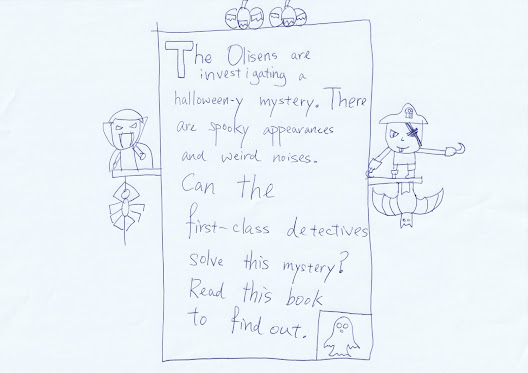 The Olisens are
investigating a
halloween-y mystery. There
are spooky appearances
and weird noises.
Can the
first-class detectives
solve this mystery?
Read this book
to find out.